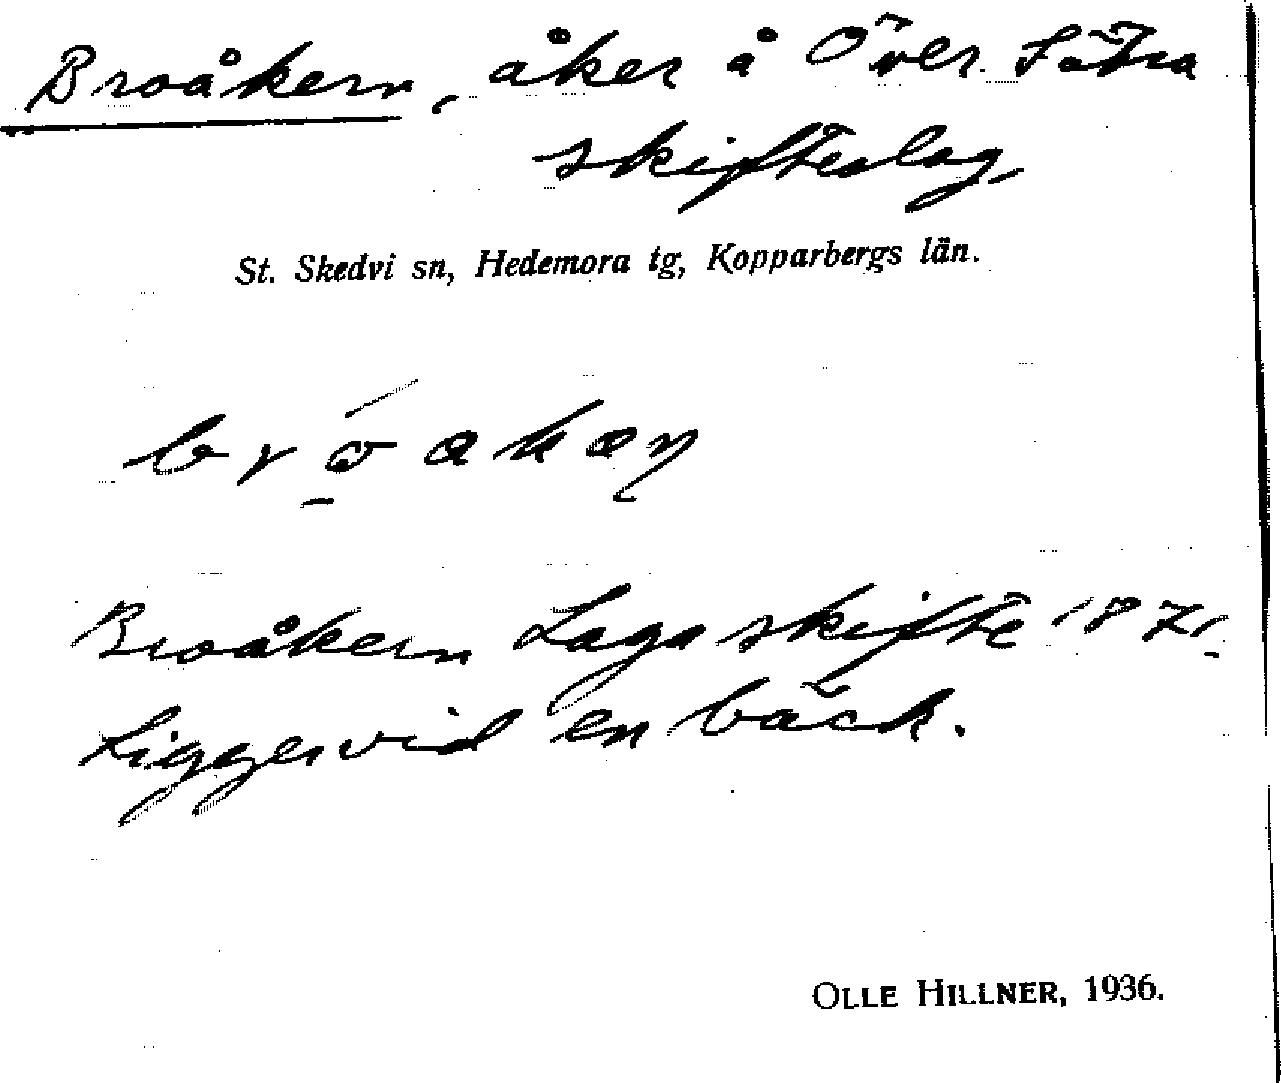 Broåkern, åker å Över Sätra
skifteslag,
St. Skedvi sn, Hedemora tg, Kopparbergs län.
Broåkern Laga skifte 187
Ligger vid en bäck.
OLLE HILLNER, 1936.